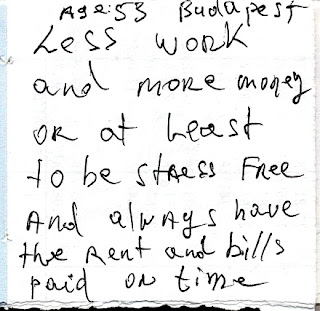 Age: 53 Budapest
Less work
and more money
or at least
to be stress free
And always have
the rent and bills
paid on time